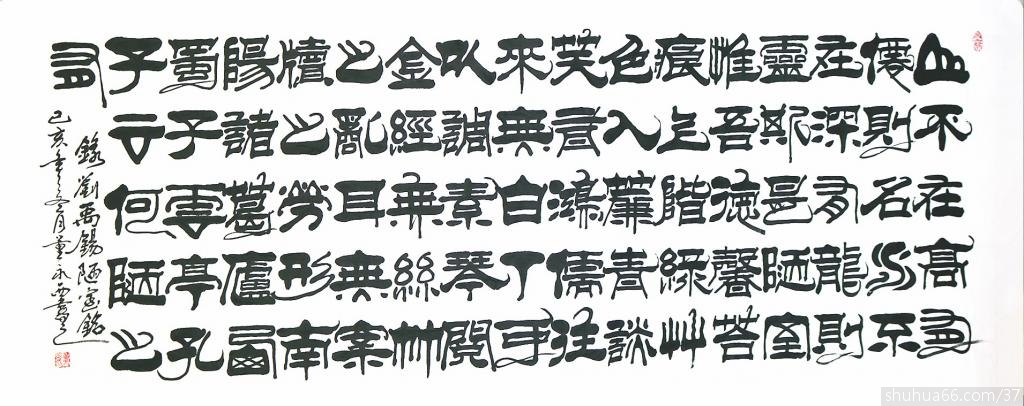 山不在高有
僊則名水不
在深有龍則
靈斯是陋室
惟吾德馨苔
痕上階綠艸
色入簾青談
笑有鴻儒往
來無白丁可
以調素琴閱
金經無絲竹
之亂耳無案
牘之勞形南
陽諸葛廬西
蜀子雲亭孔
子云何陋之
有
錄劉禹錫陋室銘
己亥年之冬月董永西書
shuhua66.com/37